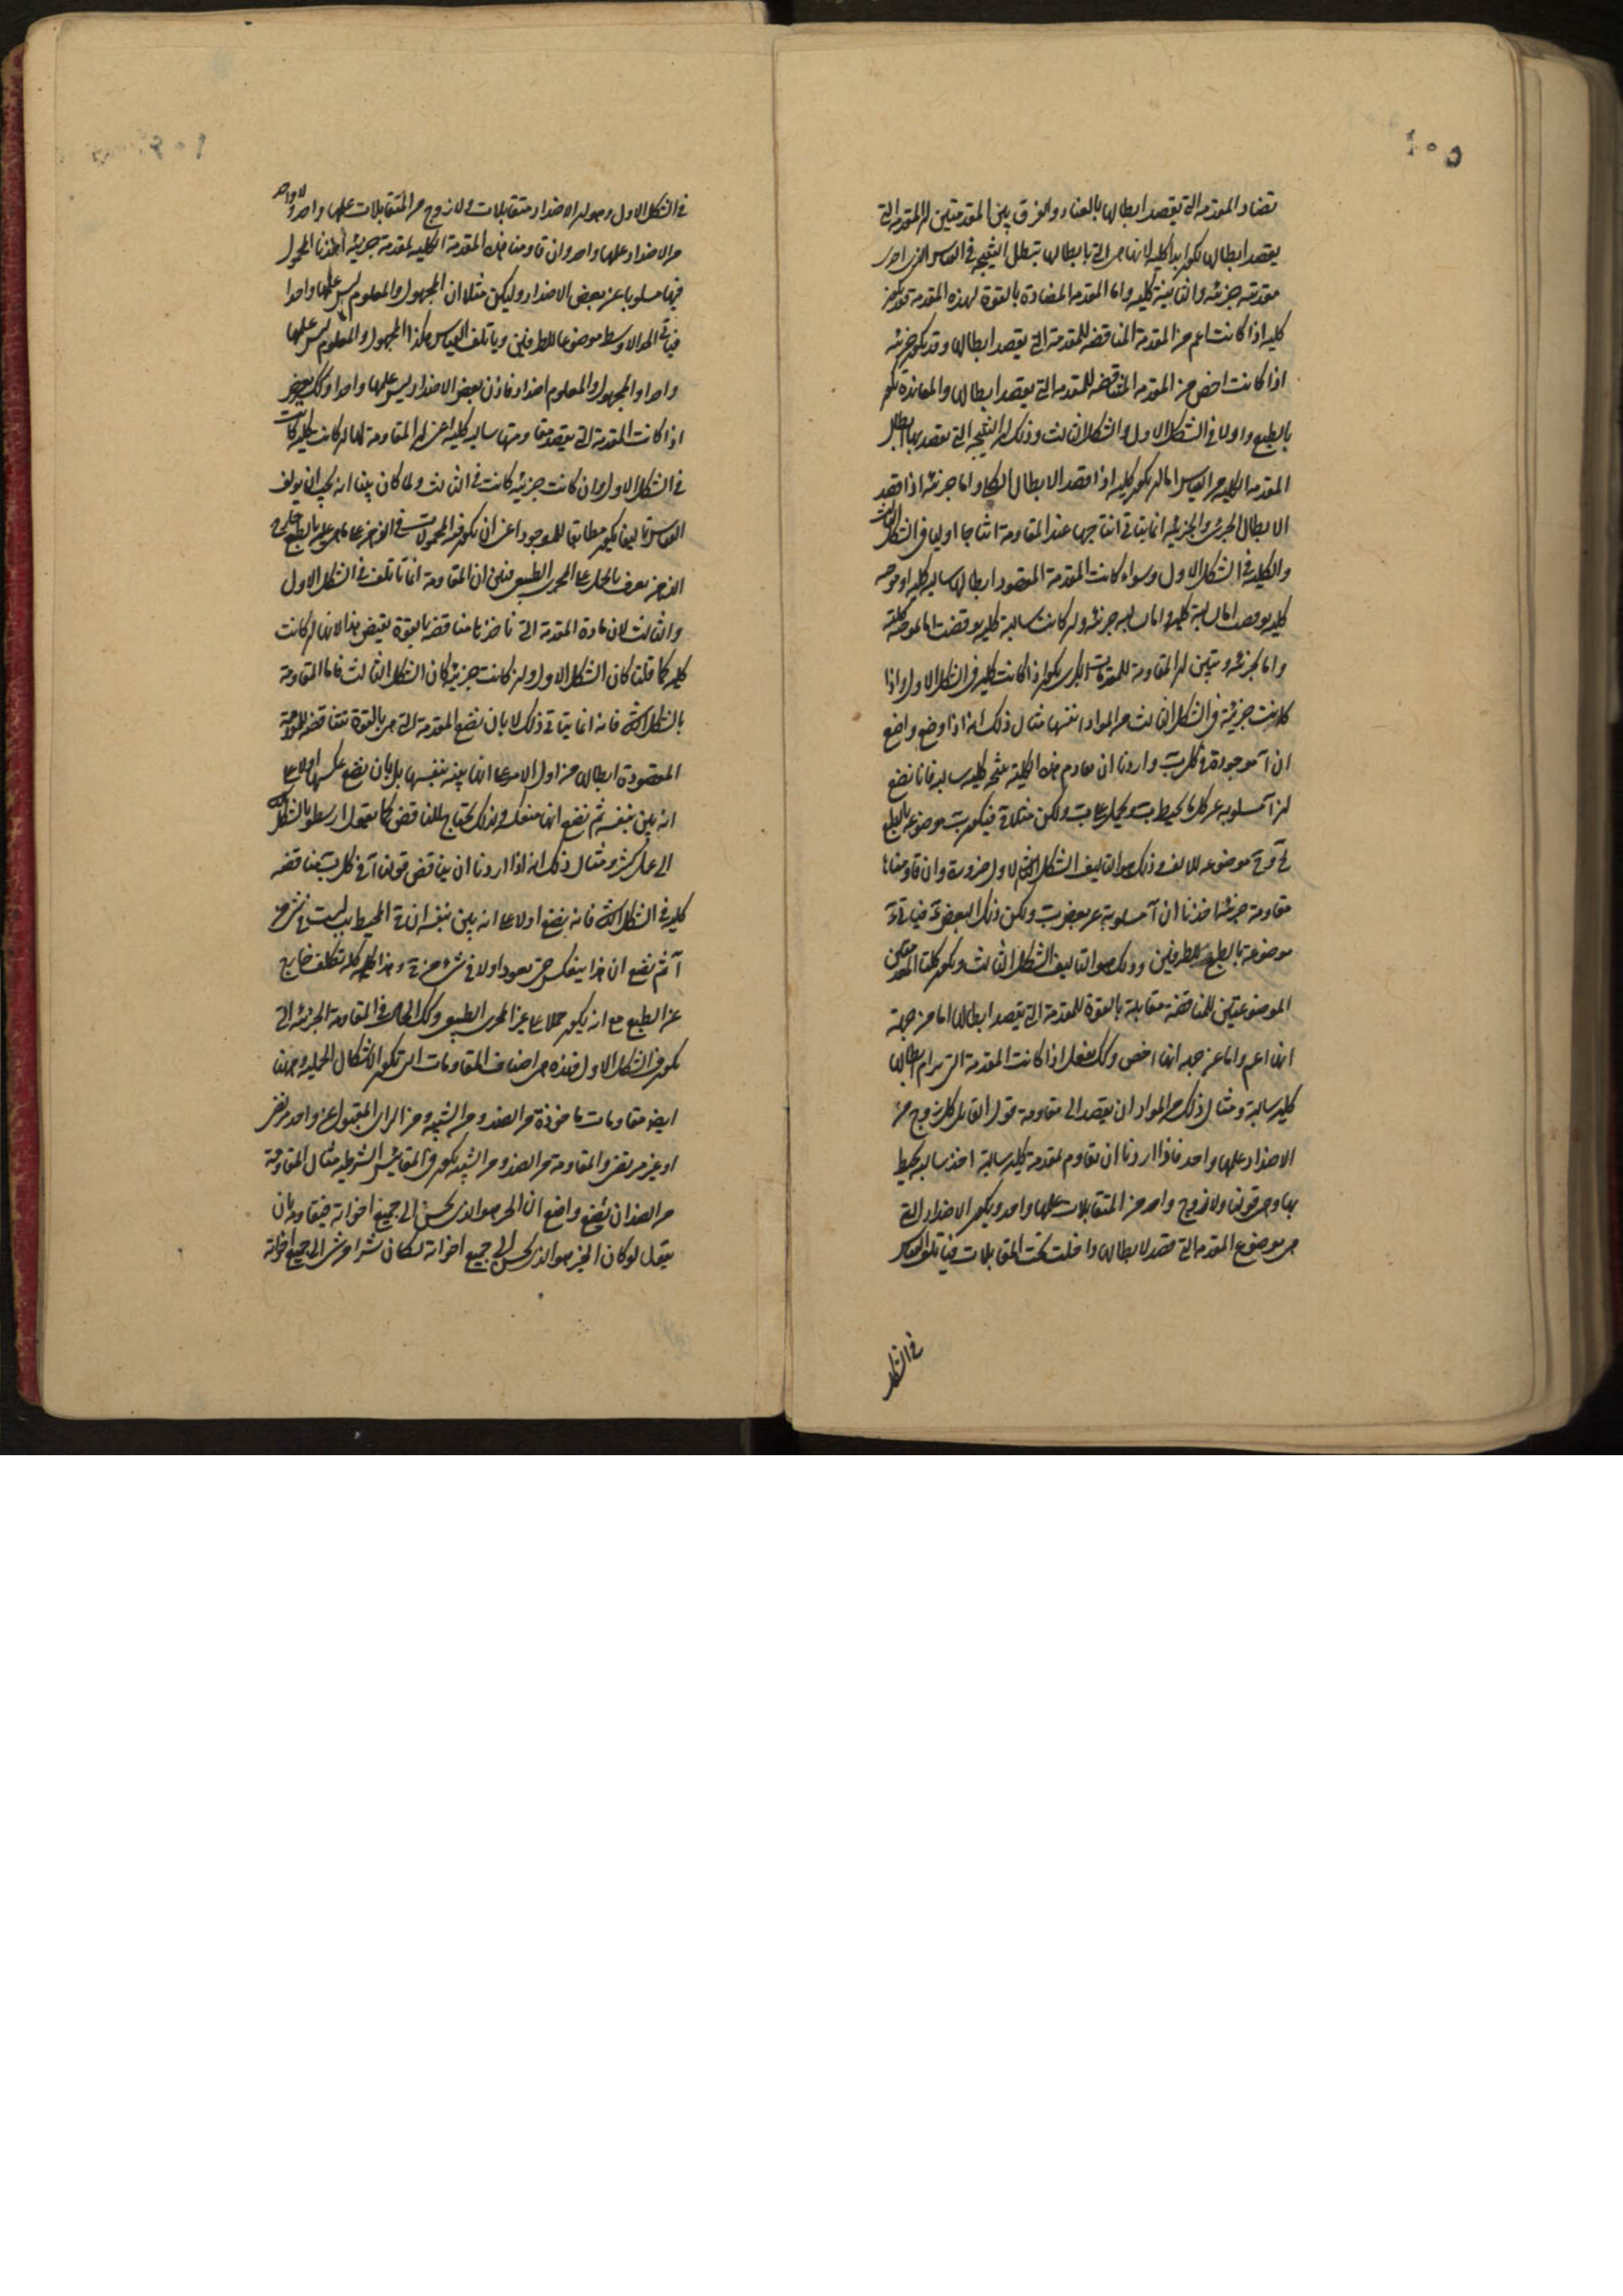 ١٠٥
تضاد المقدمه التى يقصد ابطالها بالعناد والفرق بين المقدمتين ان المقدمه التى
يقصد ابطالها تكون ابدا كليه لانها هى التى بابطالها تبطل النتيجه فى القياس الذى احدى
مقدمتيه جزئيه والثانية كليه واما المقدمه المضادة بالقوة لهذه المقدمة فقد تكون
كليه اذا كانت اعم من المقدمة المناقضه للمقدمة التى يقصد ابطالها وقد يكون جزئيه
اذا كانت اخص من المقدمه المناقضه للمقدمه التى يقصد ابطالها والمعانده تكون
بالطبع واولا فى الشكل الاول والشكل الثالث وذلك ان النتيجه التى يقصد بها ابطال
المقدمه الكليه من القياس اما ان تكون كليه اذا قصد الابطال الكلى واما جزئيه اذا قصد
الابطال الجزئى والجزئيه انما يتاتى انتاجها عند المقاومة انتاجا اوليا فى الشكل الثالث
والكليه فى الشكل الاول وسواء كانت المقدمة المقصود ابطالها سالبه كليه او موجبه
كليه نوقضت اما بسالبة كليه واما بسالبه جزئيه وان كانت سالبة كليه نوقضت اما بموجبة كلية
واما بجزئيه ويتبين ان المقاومة للمقدمات الكبرى تكون اذا كانت كليه فى الشكل الاول واذا
كانت جزئية فى الشكل الثالث من المواد انفسها مثال ذلك انه اذا وضع واضع
ان آ موجودة فى كل ب واردنا ان نقاوم هذه الكلية بنتيجه كليه سالبه فانا نضع
ان آ مسلوبه عن كل ما يحيط بب ويحمل على ب وليكن مثلا ج فيكون ب موضوعه بالطبع
لج وج موضوعه للالف وذلك هو التاليف الشكل الاول ضرورة وان قاومناها
مقاومة جزئيه اخذنا ان آ مسلوبة عن بعض ب وليكن ذلك البعض ج فياتى ج
موضوعة بالطبع للطرفين وذلك هو التاليف الشكل الثالث وتكون كلتا المقدمتين
الموضوعتين للمناقضة مقابلة بالقوة للمقدمة التى يقصد ابطالها اما من جهة
انها اعم واما من جهه انها اخص وكذلك نفعل اذا كانت المقدمة التى يرام ابطالها
كليه سالبة ومثال ذلك من المواد ان يقصد الى مقاومة قول القائل كل زوج من
الاضداد علمها واحد فاذا اردنا ان نقاوم بمقدمة كليه سالبة اخذ سالبه تحيط
بها وهى قولنا ولا زوج واحد من المتقابلات علمها واحد ويكون الاضداد التى
هى موضوع المقدمه التى قصد لابطالها داخلت تحت المتقابلات فياتلف القياس
فى الشكل
١٠٦
فى الشكل الاول وهو ان الاضداد متقابلات ولا زوج من المتقابلات علمها واحد ولا واحد
من الاضداد علمها واحد وان قاومنا هذه المقدمة الكليه بمقدمة جزئيه اخذنا المحمول
فيها مسلوبا عن بعض الاضداد وليكن مثلا ان المجهول والمعلوم ليس علمها واحدا
فياتى الحد الاوسط موضوعا للطرفين وياتلف القياس هكذا المجهول والمعلوم ليس علمها
واحدا والمجهول والمعلوم اضداد فاذن بعض الاضداد ليس علمها واحدا وكذلك يعرض
اذا كانت المقدمة التى يقصد مقاومتها سالبه كليه اعنى ان المقاومة لها ان كانت كليه كانت
فى الشكل الاول وان كانت جزئيه كانت فى الثالث ولما كان بينا انه يجب ان يولف
القياس تاليفا يكون مطابقا للموجود اعنى ان تكون فيه المحمولات فى الذهن على ما هى عليه بالطبع خارج
الذهن يعرف بالحمل على المجرى الطبيعى فبين ان المقاومة انما تاتلف فى الشكل الاول
والثالث لان مادة المقدمة التى ناخذها مناقضة بالقوة تقتضى هذا لانها ان كانت
كليه كما قلنا كان الشكل الاول وان كانت جزئيه كان الشكل الثالث فاما المقاومة
بالشكل الثانى فانه انما يتاتى ذلك لا بان نضع المقدمة التى هى بالقوة تناقضه للمقدمة
المقصودة ابطالها من اول الامر على انها بينه بنفسها بل بان نضع عكسها اولا على
انه بين بنفسه ثم نضع انها منعكسه ولذلك تحتاج المناقض كما يقول ارسطو بالشكل الثانى
الى عمل كثير ومثال ذلك انه اذا اردنا ان نناقض قولنا آ فى كل ب بمناقضه
كليه فى الشكل الثانى فانه نضع اولا على انه بين بنفسه ان ج المحيط بب ليست فى شئ من
آ ثم نضع ان هذا ينعكس حتى يعود اولا فى شئ من ج وهذا كله تكلف خارج
عن الطبع مع انه يكون حملا على غير المجرى الطبيعى وكذلك الحال فى المقاومة الجزئيه التى
تكون فى الشكل الاول فهذه هى اصناف المقاومات التى تكون بالاشكال الحمليه وههنا
ايضا مقاومات ماخوذة من الضد ومن الشبيه ومن الراى المقبول عن واحد مرتضى
او غير مرتضى والمقاومة من الضد ومن الشبيه تكون فى المقائيس الشرطيه مثال المقاومة
من الضد ان يضع واضع ان الخير هو الذى يحسن الى جميع اخوانه فيقاومه بان
يقول لو كان الخير هو الذى يحسن الى جميع اخوانه لكان شرا من شر الى جميع اخوانه